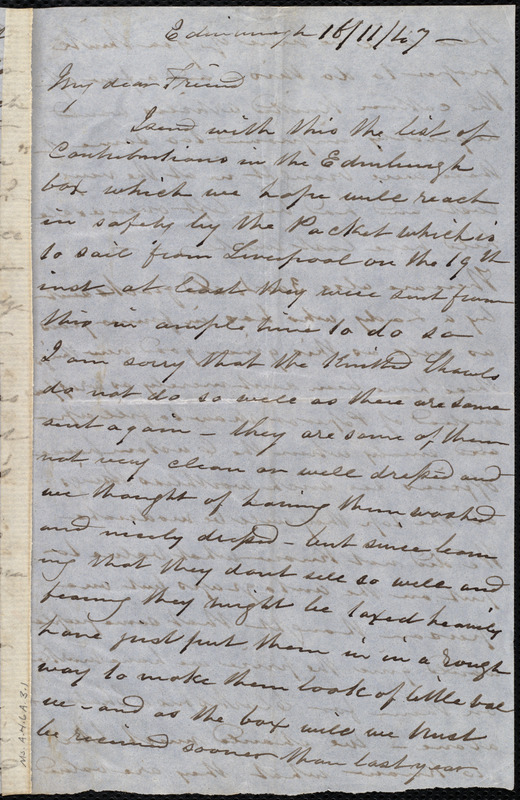 Edinburgh 16/11/47 —
My dear Friend
I send with this the list of
Contributions in the Edinburgh
box which we hope will reach
in safety by the Packet which is
to sail from Liverpool on the 19th
inst at least they were sent from
this in ample time to do so
I am sorry that the Knitted Shawls
do not do so well as there are some
sent again — they are some of them
not very clean or well dressed and
we thought of having them washed
and nicely dressed — but since learn
ing that they dont sell so well and
fearing they might be taxed heavily
have just put them in in a rough
way to make them look of little val
ue — and as the box will we trust
be received sooner than last year
MS.A.1.6A.3.1